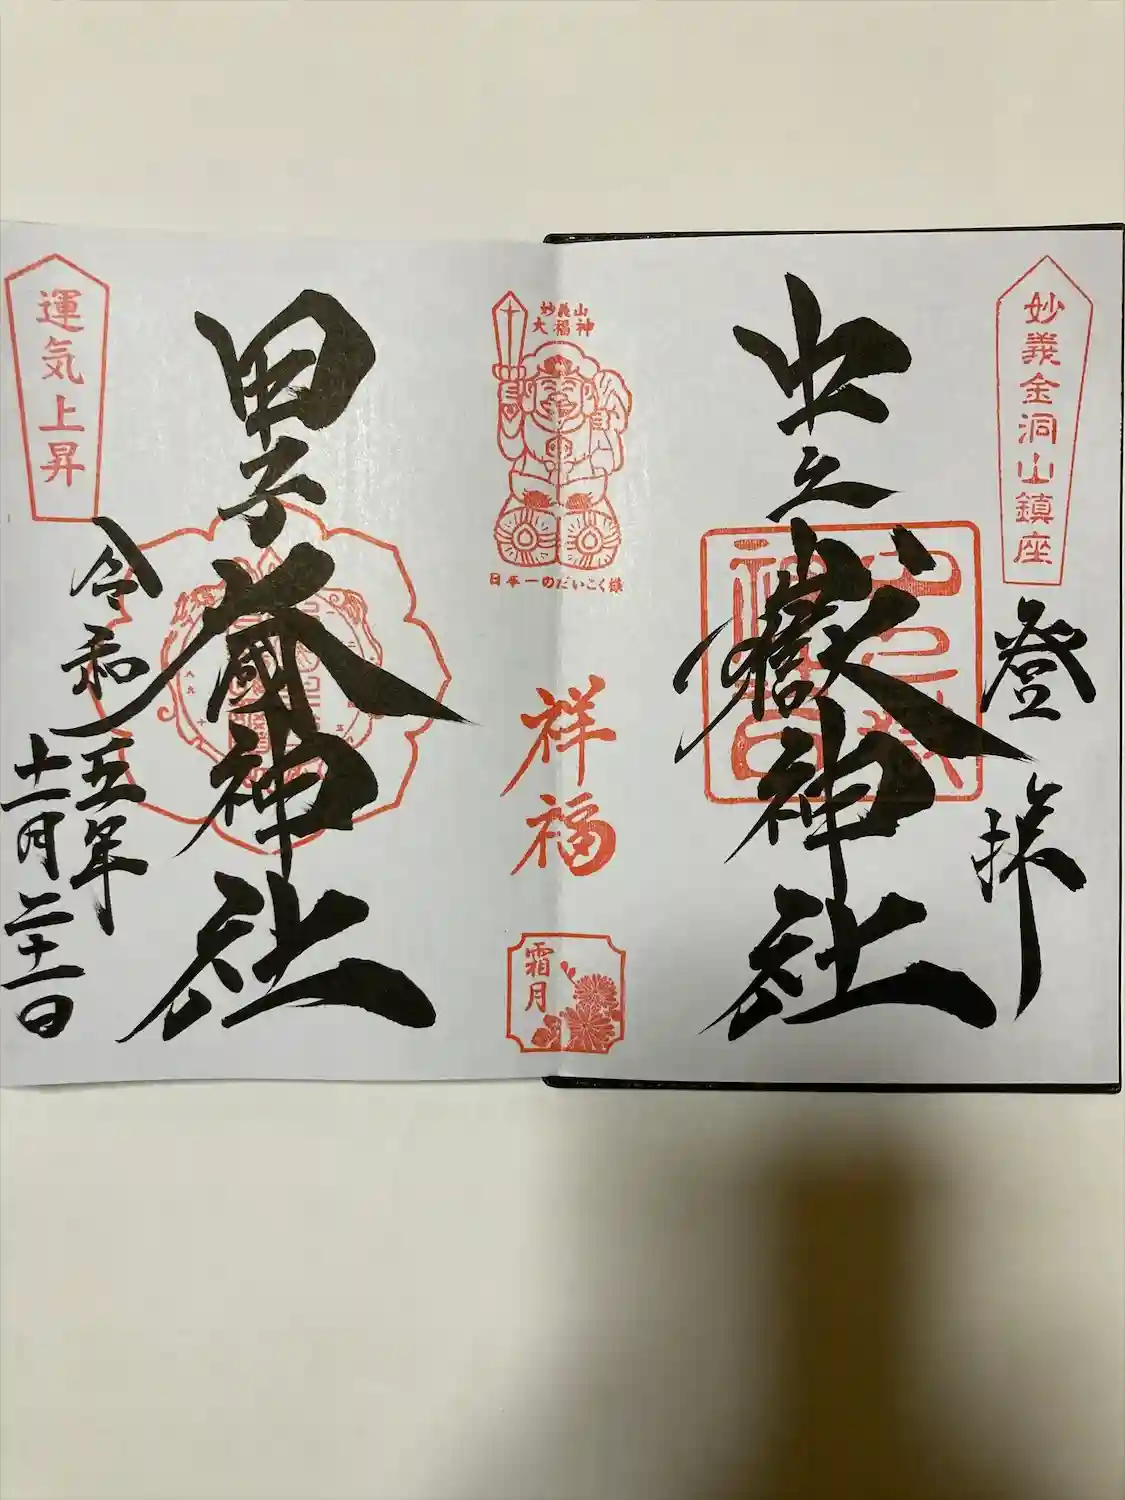 妙義金洞山鎮座
登拝
中之嶽神社
妙義山
大福神
日本一のだいこく様
祥福
霜月
甲子大國神社
運気上昇
令和五年
十一月二十一日